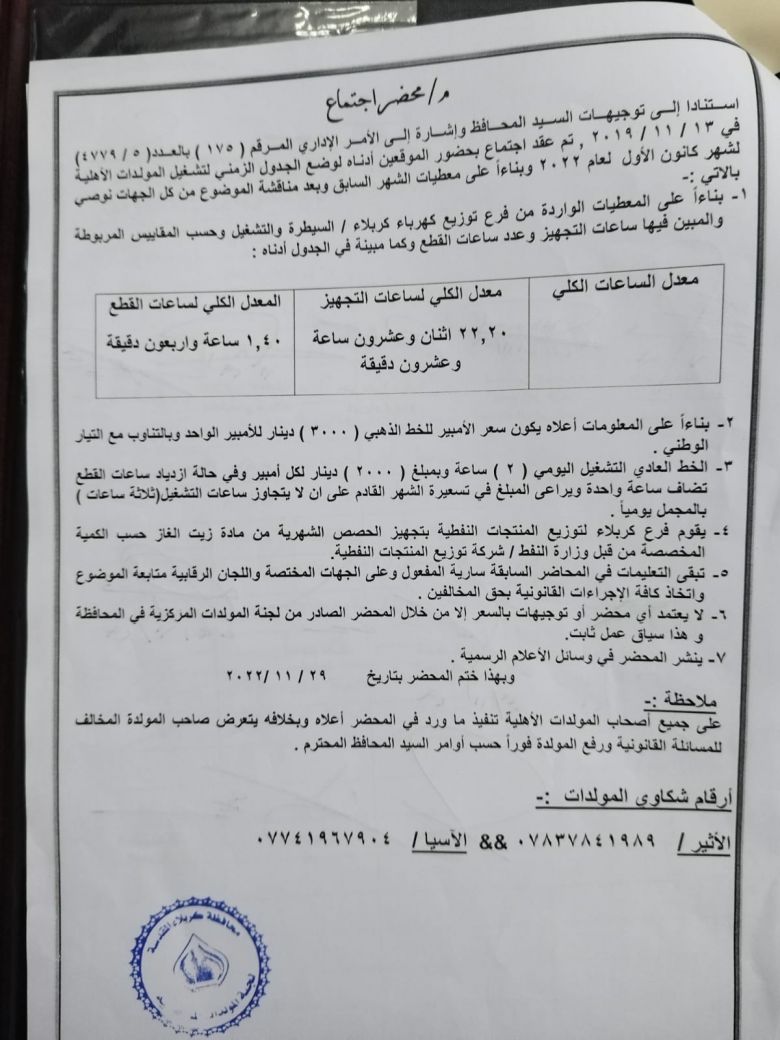 م/ محضر اجتماع
استنادا إلى توجيهات السيد المحافظ وإشارة إلى الأمر الإداري المرقم ( ١٧٥ ) بالعدد( ٥ / ٤٧٧٩)
في ١٣ / ١١ / ٢٠١٩ , تم عقد اجتماع بحضور الموقعين أدناه لوضع الجدول الزمني لتشغيل المولدات الأهلية
لشهر كانون الأول لعام ٢٠٢٢ وبناءاً على معطيات الشهر السابق وبعد مناقشة الموضوع من كل الجهات نوصي
بالاتي :-
١- بناءاً على المعطيات الواردة من فرع توزيع كهرباء كربلاء / السيطرة والتشغيل وحسب المقاييس المربوطة
والمبين فيها ساعات التجهيز وعدد ساعات القطع وكما مبينة في الجدول أدناه :
معدل الساعات الكلي
معدل الكلي لساعات التجهيز
المعدل الكلي لساعات القطع
٢٢,٢٠ اثنان وعشرون ساعة
١,٤٠ ساعة واربعون دقيقة
وعشرون دقيقة
٢- بناءاً على المعلومات أعلاه يكون سعر الأمبير للخط الذهبي ( ٣٠٠٠ ) دينار للأمبير الواحد وبالتناوب مع التيار
الوطني .
٣- الخط العادي التشغيل اليومي ( ٢ ) ساعة وبمبلغ ( ٢٠٠٠ ) دينار لكل أمبير وفي حالة ازدياد ساعات القطع
تضاف ساعة واحدة ويراعى المبلغ في تسعيرة الشهر القادم على ان لا يتجاوز ساعات التشغيل(ثلاثة ساعات )
بالمجمل يومياً .
٤- يقوم فرع كربلاء لتوزيع المنتجات النفطية بتجهيز الحصص الشهرية من مادة زيت الغاز حسب الكمية
المخصصة من قبل وزارة النفط / شركة توزيع المنتجات النفطية.
٥- تبقى التعليمات في المحاضر السابقة سارية المفعول وعلى الجهات المختصة واللجان الرقابية متابعة الموضوع
واتخاذ كافة الإجراءات القانونية بحق المخالفين .
٦- لا يعتمد أي محضر أو توجيهات بالسعر إلا من خلال المحضر الصادر من لجنة المولدات المركزية في المحافظة
و هذا سياق عمل ثابت.
٧- ينشر المحضر في وسائل الأعلام الرسمية .
وبهذا ختم المحضر بتاريخ ٢٩ / ١١ /٢٠٢٢
ملاحظة :-
على جميع أصحاب المولدات الأهلية تنفيذ ما ورد في المحضر أعلاه وبخلافه يتعرض صاحب المولدة المخالف
للمسائلة القانونية ورفع المولدة فوراً حسب أوامر السيد المحافظ المحترم .
أرقام شكاوى المولدات :-
الأثير / ٠٧٨٣٧٨٤١٩٨٩ && الآسيا / ٠٧٧٤١٩٦٧٩٠٤
محافظة كربلاء المقدسة
لجنة المولدات